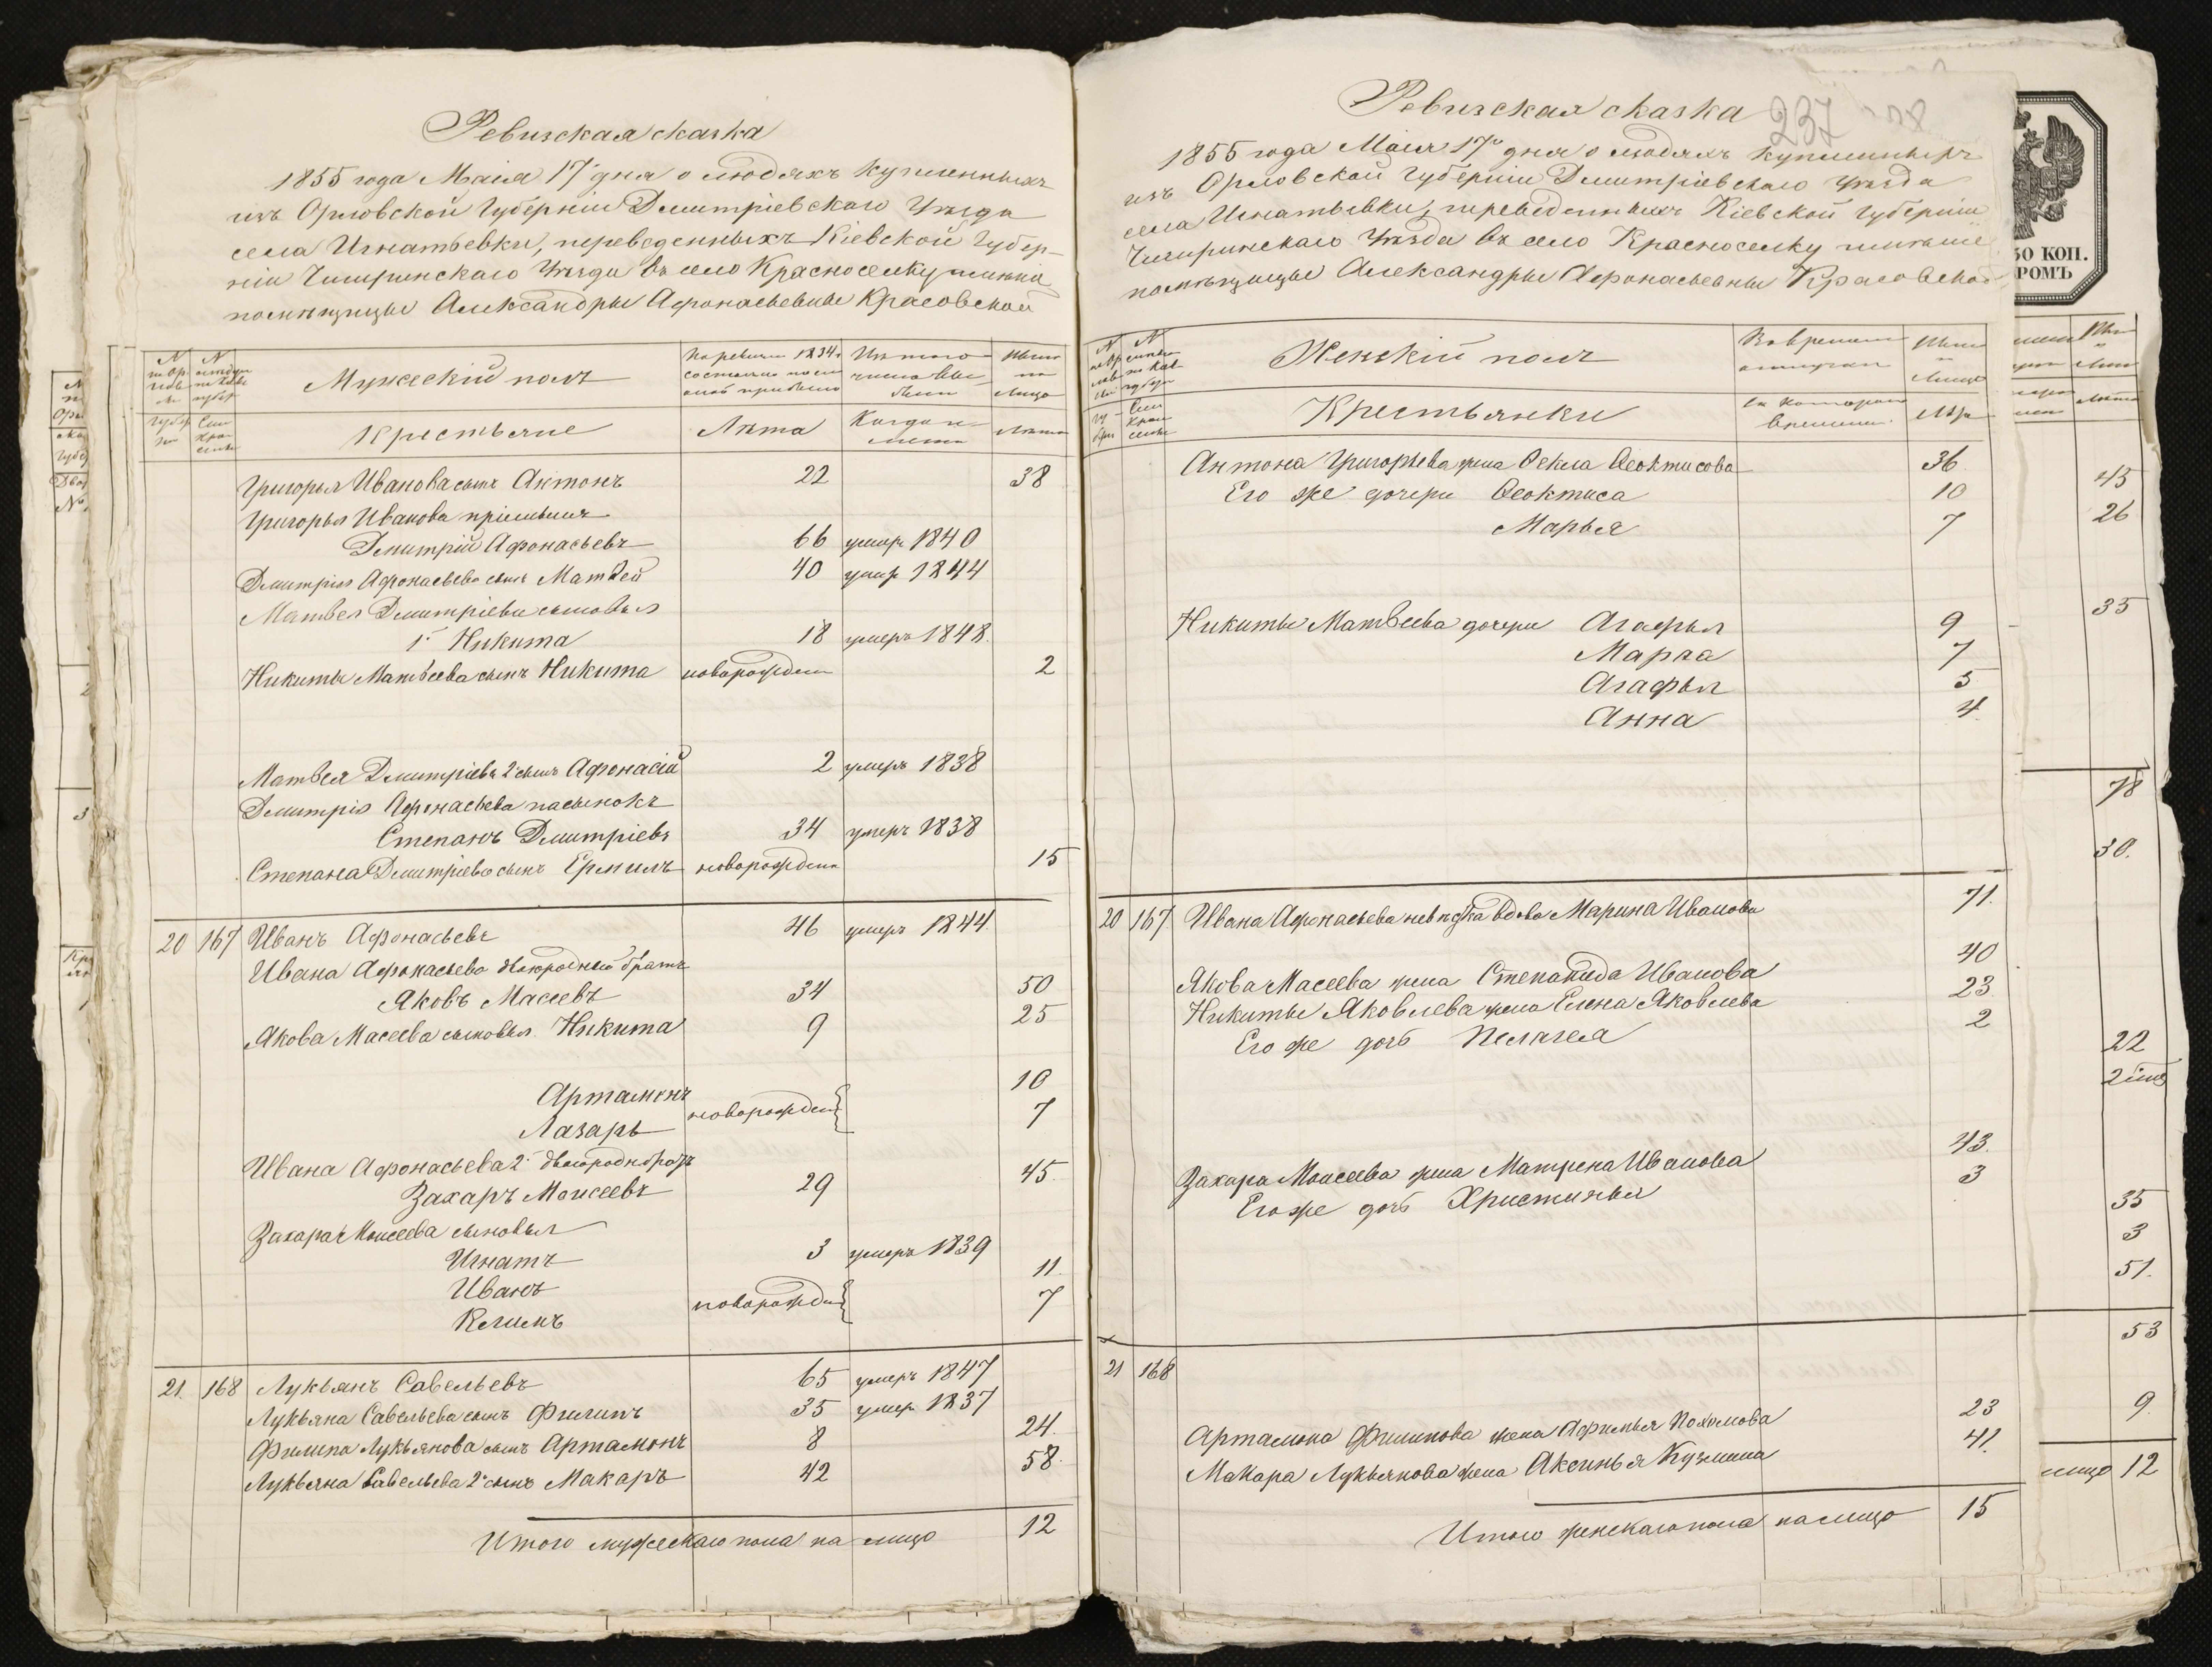 Ревизская сказка
1855 года Маія 17 дня о людяхъ купленныхъ
изъ Орловской Губерніи Дмитріевскаго Уѣзда
села Игнатьевки, переведенныхъ Кіевской Губер-
ніи Чигиринскаго Уѣзда въ село Красноселку имѣнія
помѣщицы Александры Афонасьевны Красовской
Мужескій полъ
По ревизіи 1834 состояло и послѣ оной прибыло
Изъ того числа выбыло
Нынѣ на лицо
Крестьяне
Лѣта
Когда именно
Лѣта
Григорья Иванова сынъ Антонъ 22 38
Григорья Иванова пріемышъ
Дмитрій Афонасьевъ 66 умеръ 1840
Дмитрія Афонасьева сынъ Матвей 40 умеръ 1844
Матвея Дмитріева сыновья
1й Никита 18 умеръ 1848.
Никиты Матвеева сынъ Никита новорожден 2
Матвея Дмитріева 2 сынъ Афонасій 2 умеръ 1838
Дмитрія Афонасьева пасынокъ
Степанъ Дмитріевъ 34 умеръ 1838
Степана Дмитріева сынъ Ермилъ новорожден 15
20 167 Иванъ Афонасьевъ 46 умеръ 1844.
Ивана Афонасьева двоюродный братъ
Яковъ Масеевъ 34 50
Якова Масеева сыновья Никита 9 25
Артамонъ 10
новорожден
Лазарь 7
Ивана Афонасьева 2й двоюродн братъ
Захаръ Моисеевъ 29 45.
Захара Моисеева сыновья
Игнатъ 3 умеръ 1839
Иванъ 11.
новорожден
Климъ 7
21. 168 Лукьянъ Савельевъ 65 умеръ 1847
Лукьяна Савельева сынъ Филипъ 35 умеръ 1837
Филипа Лукьянова сынъ Артамонъ 8 24.
Лукьяна Савельева 2й сынъ Макаръ 42 58.
Итого мужескаго пола на лицо 12
Ревизская сказка
237
1855 года Маія 17го дня о людяхъ купленныхъ
изъ Орловской Губерніи Дмитріевскаго Уѣзда
села Игнатьевки, переведенныхъ Кіевской Губерніи
Чигиринскаго Уѣзда въ село Красноселку имѣніе
помѣщицы Александры Афонасьевны Красовской
Женскій полъ
Во временной отлучкѣ
Нынѣ на лицо
Крестьянки
съ котораго времени.
Лѣта
Антона Григорьева жена Фекла Феоктисова 36
Его же дочери Феоктиса 10
Марья 7
Никиты Матвеева дочери Агафья 9
Марфа 7
Агафья 5
Анна 4
20 167 Ивана Афонасьева невѣстка вдова Марина Иванова 71.
Якова Масеева жена Степанида Иванова 40
Никиты Яковлева жена Елена Яковлева 23
Его же дочь Пелагея 2
Захара Моисеева жена Матрена Иванова 43.
Его же дочь Христинья 3
21 168
Артамона Филипова жена Афимья Похомова 23
Макара Лукьянова жена Аксинья Кузмина 41.
Итого женскаго пола на лицо 15
50 КОП.
РОМЪ
45
26
35
78
30.
22
35
3
51.
53
9
лицо 12